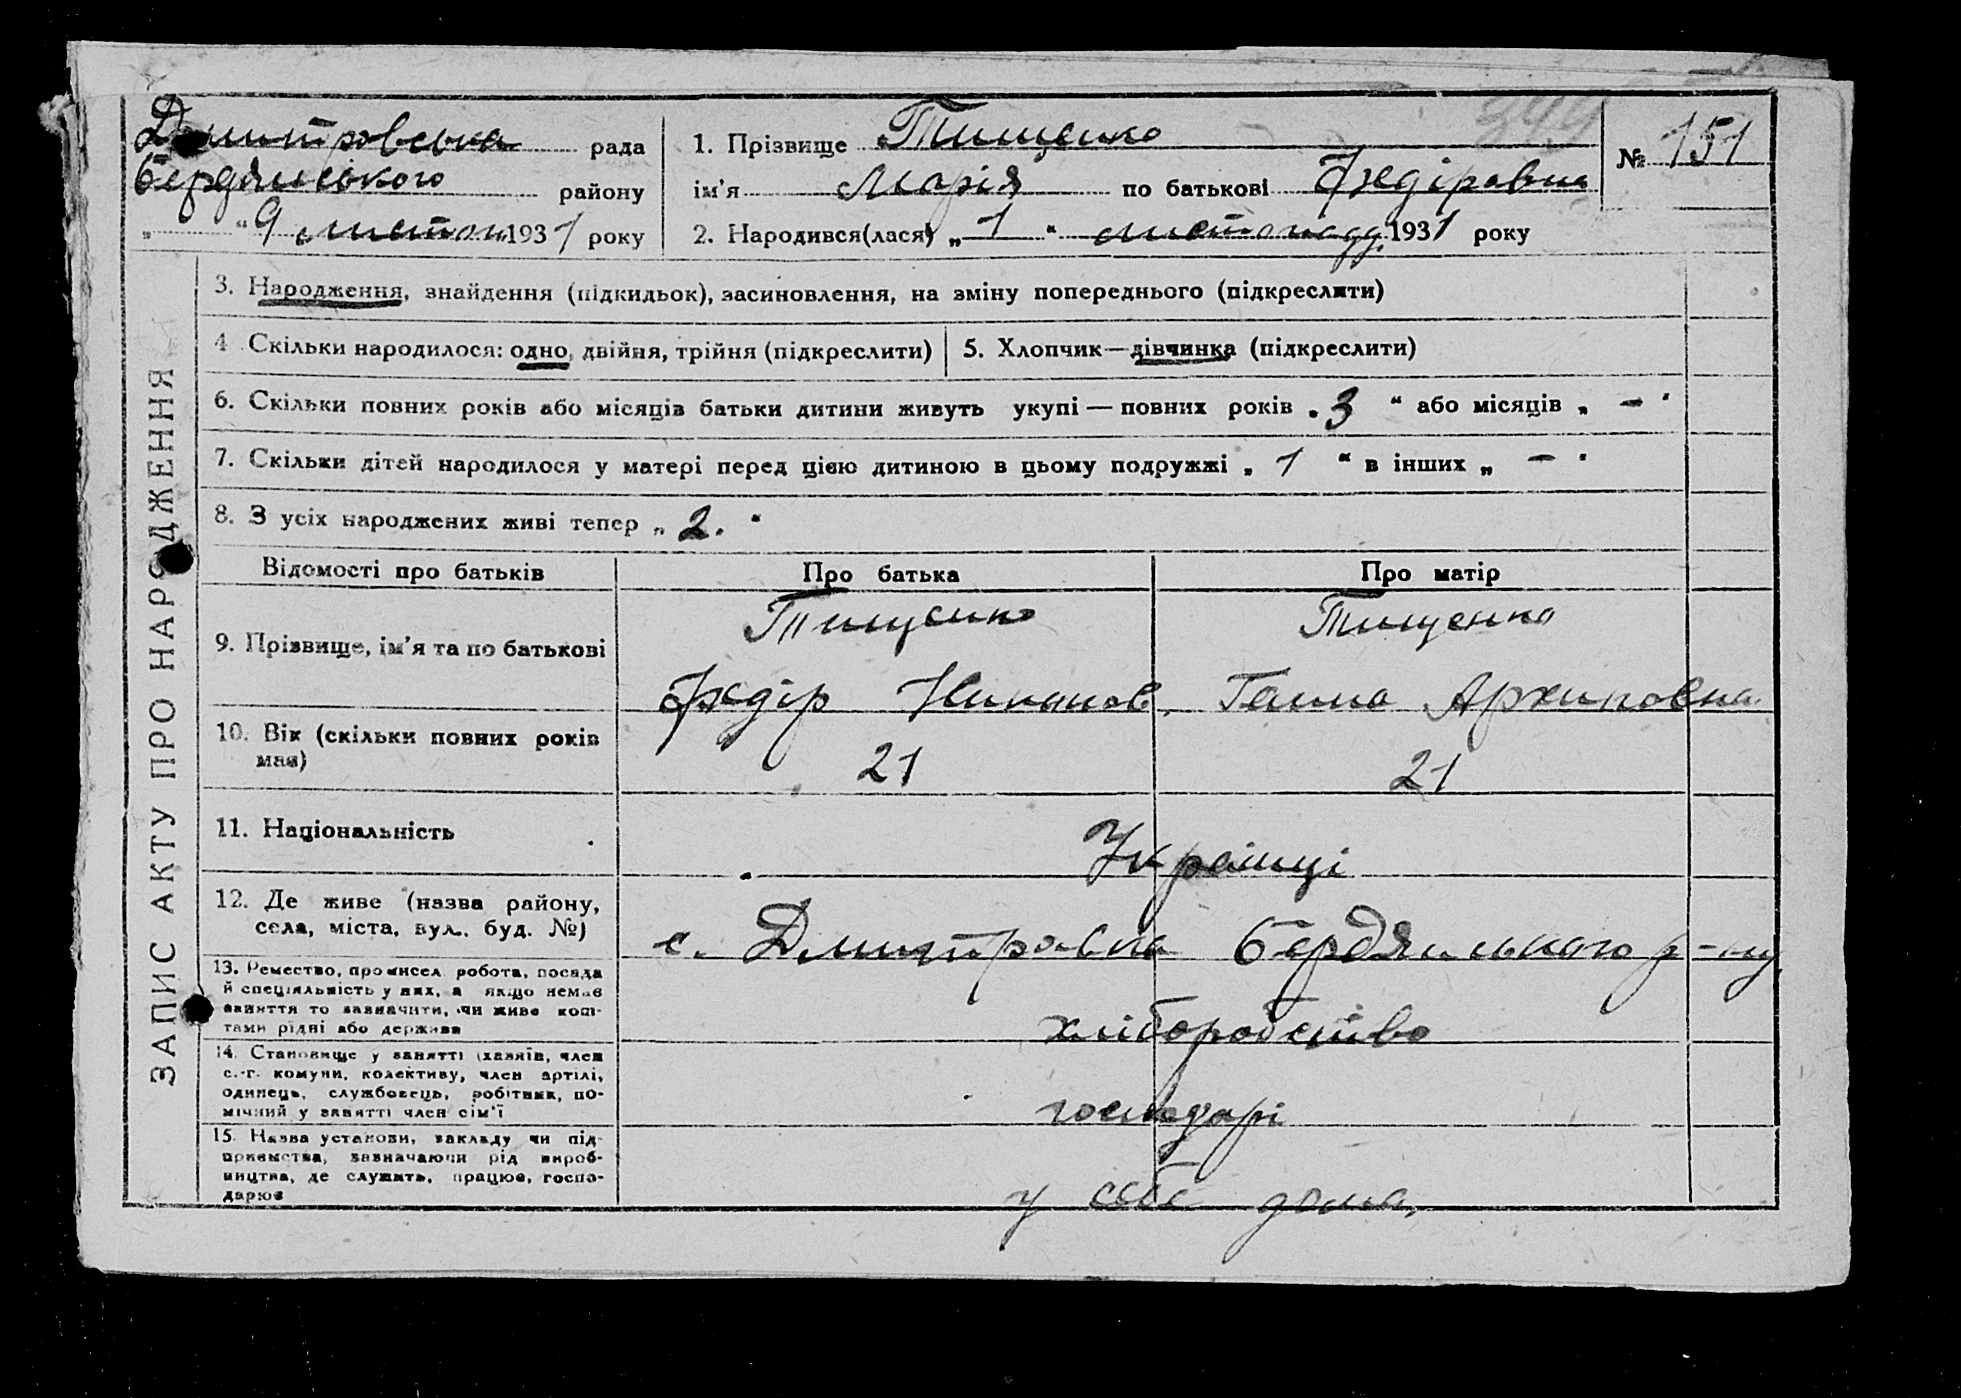 Дмитровська рада
Бердянського району
„ “ 9 листоп. 1931 року
1. Прізвище Тищенко
ім’я Марія по батькові Федіровна
2. Народився(лася) „ 1 “ листопада 1931 року
№ 151
344
3. Народження, знайдення (підкидьок), засиновлення, на зміну попереднього (підкреслити)
4 Скільки народилося: одно, двійня, трійня (підкреслити)
5. Хлопчик—дівчинка (підкреслити)
6. Скільки повних років або місяців батьки дитини живуть укупі — повних років „ 3 “ або місяців „ – “
7. Скільки дітей народилося у матері перед цією дитиною в цьому подружжі „ 1 “ в інших „ – “
8. З усіх народжених живі тепер „ 2. “
ЗАПИС АКТУ ПРО НАРОДЖЕННЯ
Відомості про батьків
Про батька
Про матір
9. Прізвище, ім’я та по батькові
Тищенко
Федір Никонов.
Тищенко
Ганна Архиповна
10. Вік (скільки повних років
має)
21
21
11. Національність
Українці
12. Де живе (назва району,
села, міста, вул., буд. №)
с. Дмитровка Бердянського р-ну
13. Ремество, промисел робота, посада
й спеціяльність у них, а якщо немає
заняття то зазначити, чи живе кош-
тами рідні або держави
хліборобство
14. Становище у занятті (хазяїн, член
с.-г. комуни, колективу, член артілі,
одинець, службовець, робітник, по-
мічний у занятті член сім’ї
господарі
15. Назва установи, закладу чи під-
приємства, зазначаючи рід вироб-
ництва, де служить, працює, госпо-
дарює
у себе дома,